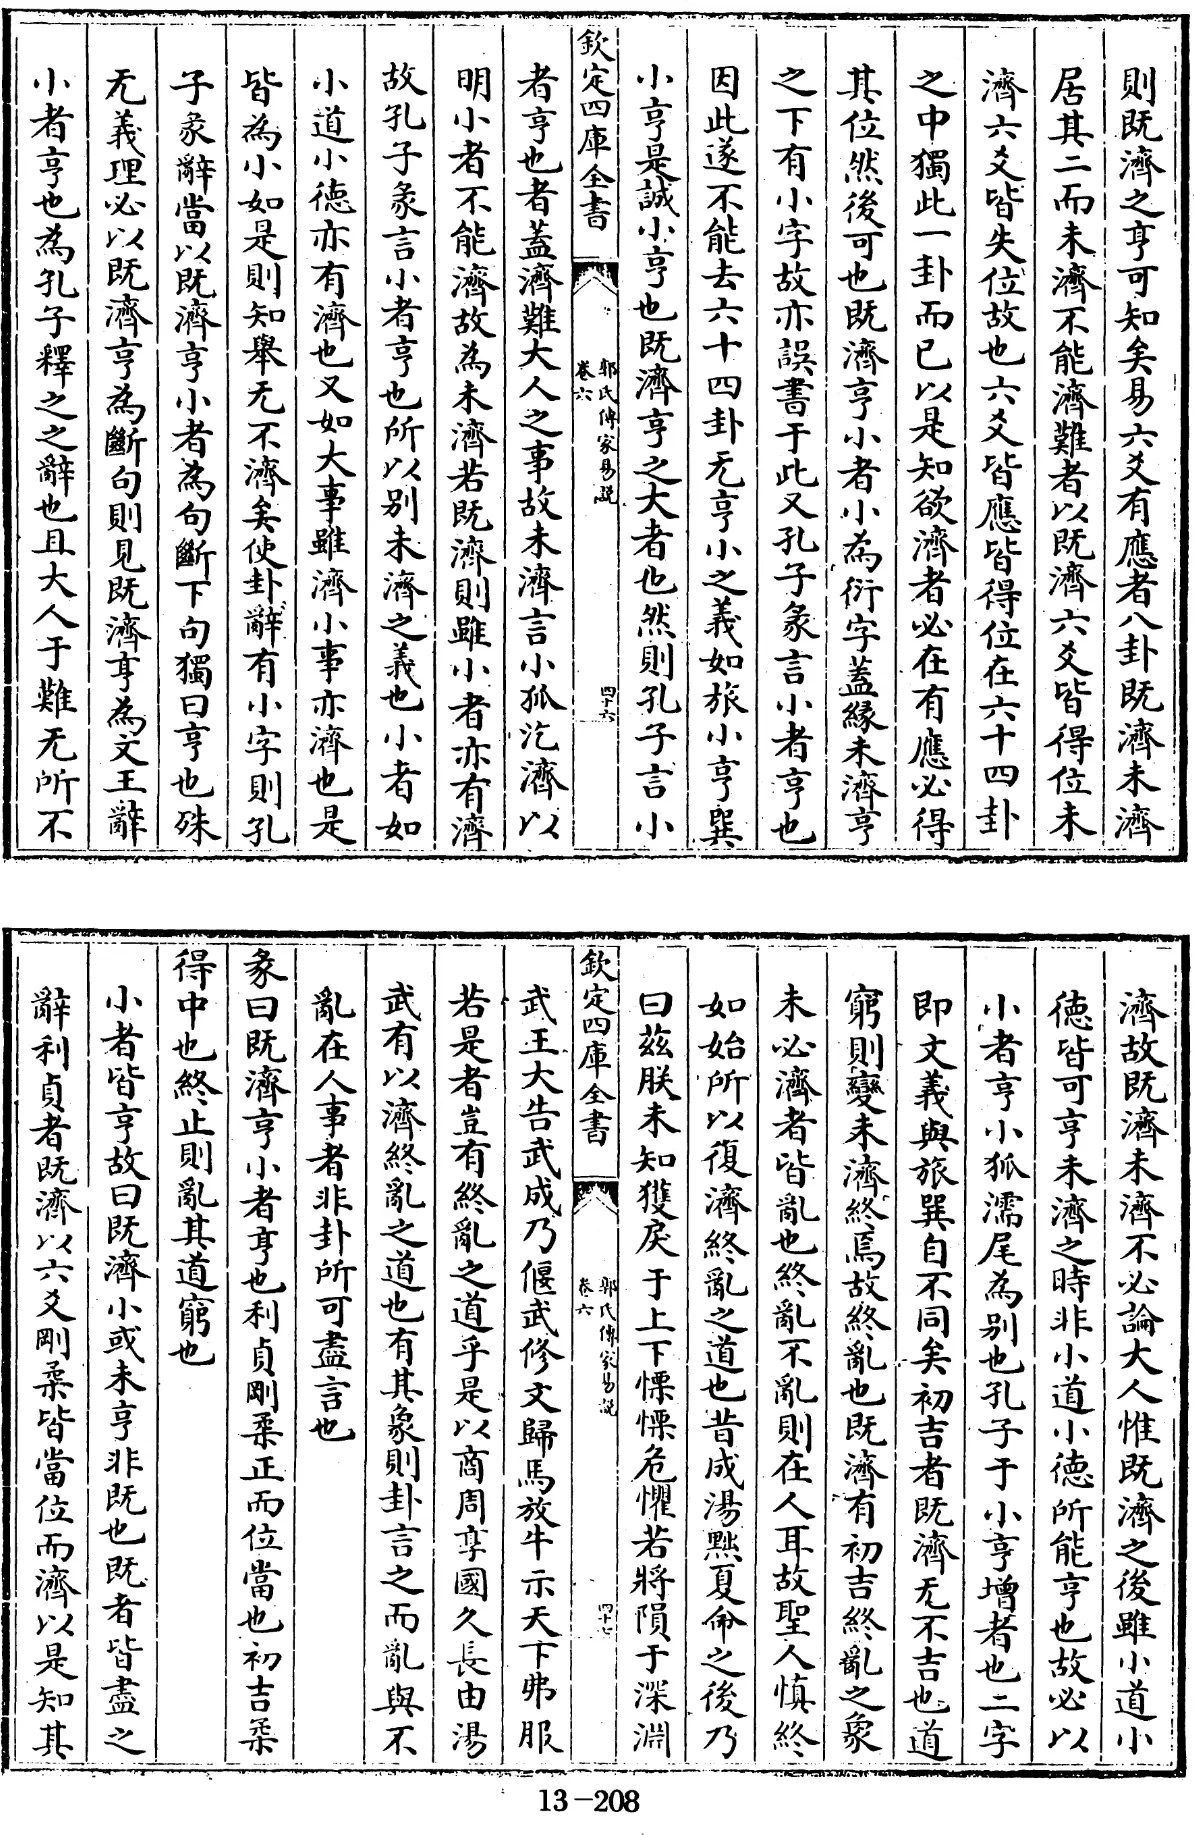 則既濟之亨可知矣易六爻有應者八卦既濟未濟
居其二而未濟不能濟難者以既濟六爻皆得位未
濟六爻皆失位故也六爻皆應皆得位在六十四卦
之中獨此一卦而已以是知欲濟者必在有應必得
其位然後可也既濟亨小者小為衍字蓋緣未濟亨
之下有小字故亦誤書于此又孔子彖言小者亨也
因此遂不能去六十四卦无亨小之義如旅小亨巽
小亨是誠小亨也既濟亨之大者也然則孔子言小
欽定四庫全書
郭氏傳家易說
卷六
四十六
者亨也者蓋濟難大人之事故未濟言小狐汔濟以
明小者不能濟故為未濟若既濟則雖小者亦有濟
故孔子彖言小者亨也所以别未濟之義也小者如
小道小德亦有濟也又如大事雖濟小事亦濟也是
皆為小如是則知舉无不濟矣使卦辭有小字則孔
子彖辭當以既濟亨小者為句斷下句獨曰亨也殊
无義理必以既濟亨為斷句則見既濟亨為文王辭
小者亨也為孔子釋之之辭也且大人于難无所不
濟故既濟未濟不必論大人惟既濟之後雖小道小
德皆可亨未濟之時非小道小德所能亨也故必以
小者亨小狐濡尾為别也孔子于小亨增者也二字
即文義與旅巽自不同矣初吉者既濟无不吉也道
窮則變未濟終焉故終亂也既濟有初吉終亂之象
未必濟者皆亂也終亂不亂則在人耳故聖人慎終
如始所以復濟終亂之道也昔成湯黜夏命之後乃
曰兹朕未知獲戾于上下慄慄危懼若將隕于深淵
欽定四庫全書
郭氏傳家易說
卷六
四十七
武王大告武成乃偃武修文歸馬放牛示天下弗服
若是者豈有終亂之道乎是以商周享國久長由湯
武有以濟終亂之道也有其象則卦言之而亂與不
亂在人事者非卦所可盡言也
彖曰既濟亨小者亨也利貞剛柔正而位當也初吉柔
得中也終止則亂其道窮也
小者皆亨故曰既濟小或未亨非既也既者皆盡之
辭利貞者既濟以六爻剛柔皆當位而濟以是知其
13-208